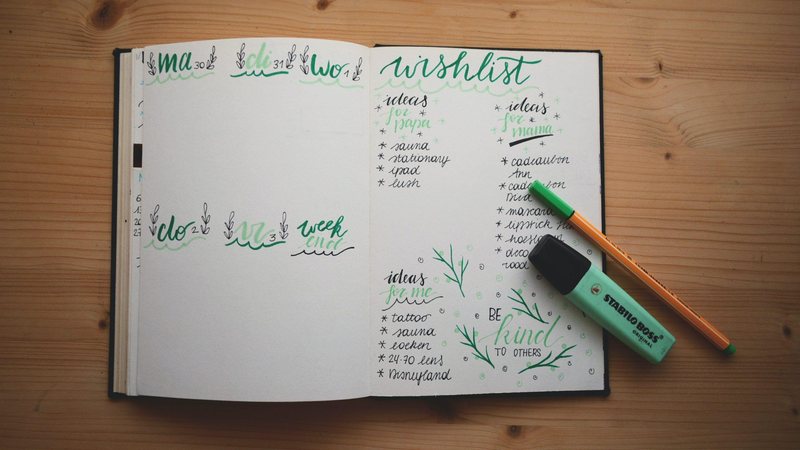 ma 30
di 31
wo 1
do 2
vr 3
week
end
wishlist
ideas
for
papa
* sauna
* stationary
* ipad
* lush
ideas
for
mama
* cadeaubon
Ann
* mascara
* lipstick
rood
ideas
for me
* tattoo
* sauna
* boeken
* 24-70 lens
* Disneyland
BE
kind
TO OTHERS
STABILO BOSS
ORIGINAL